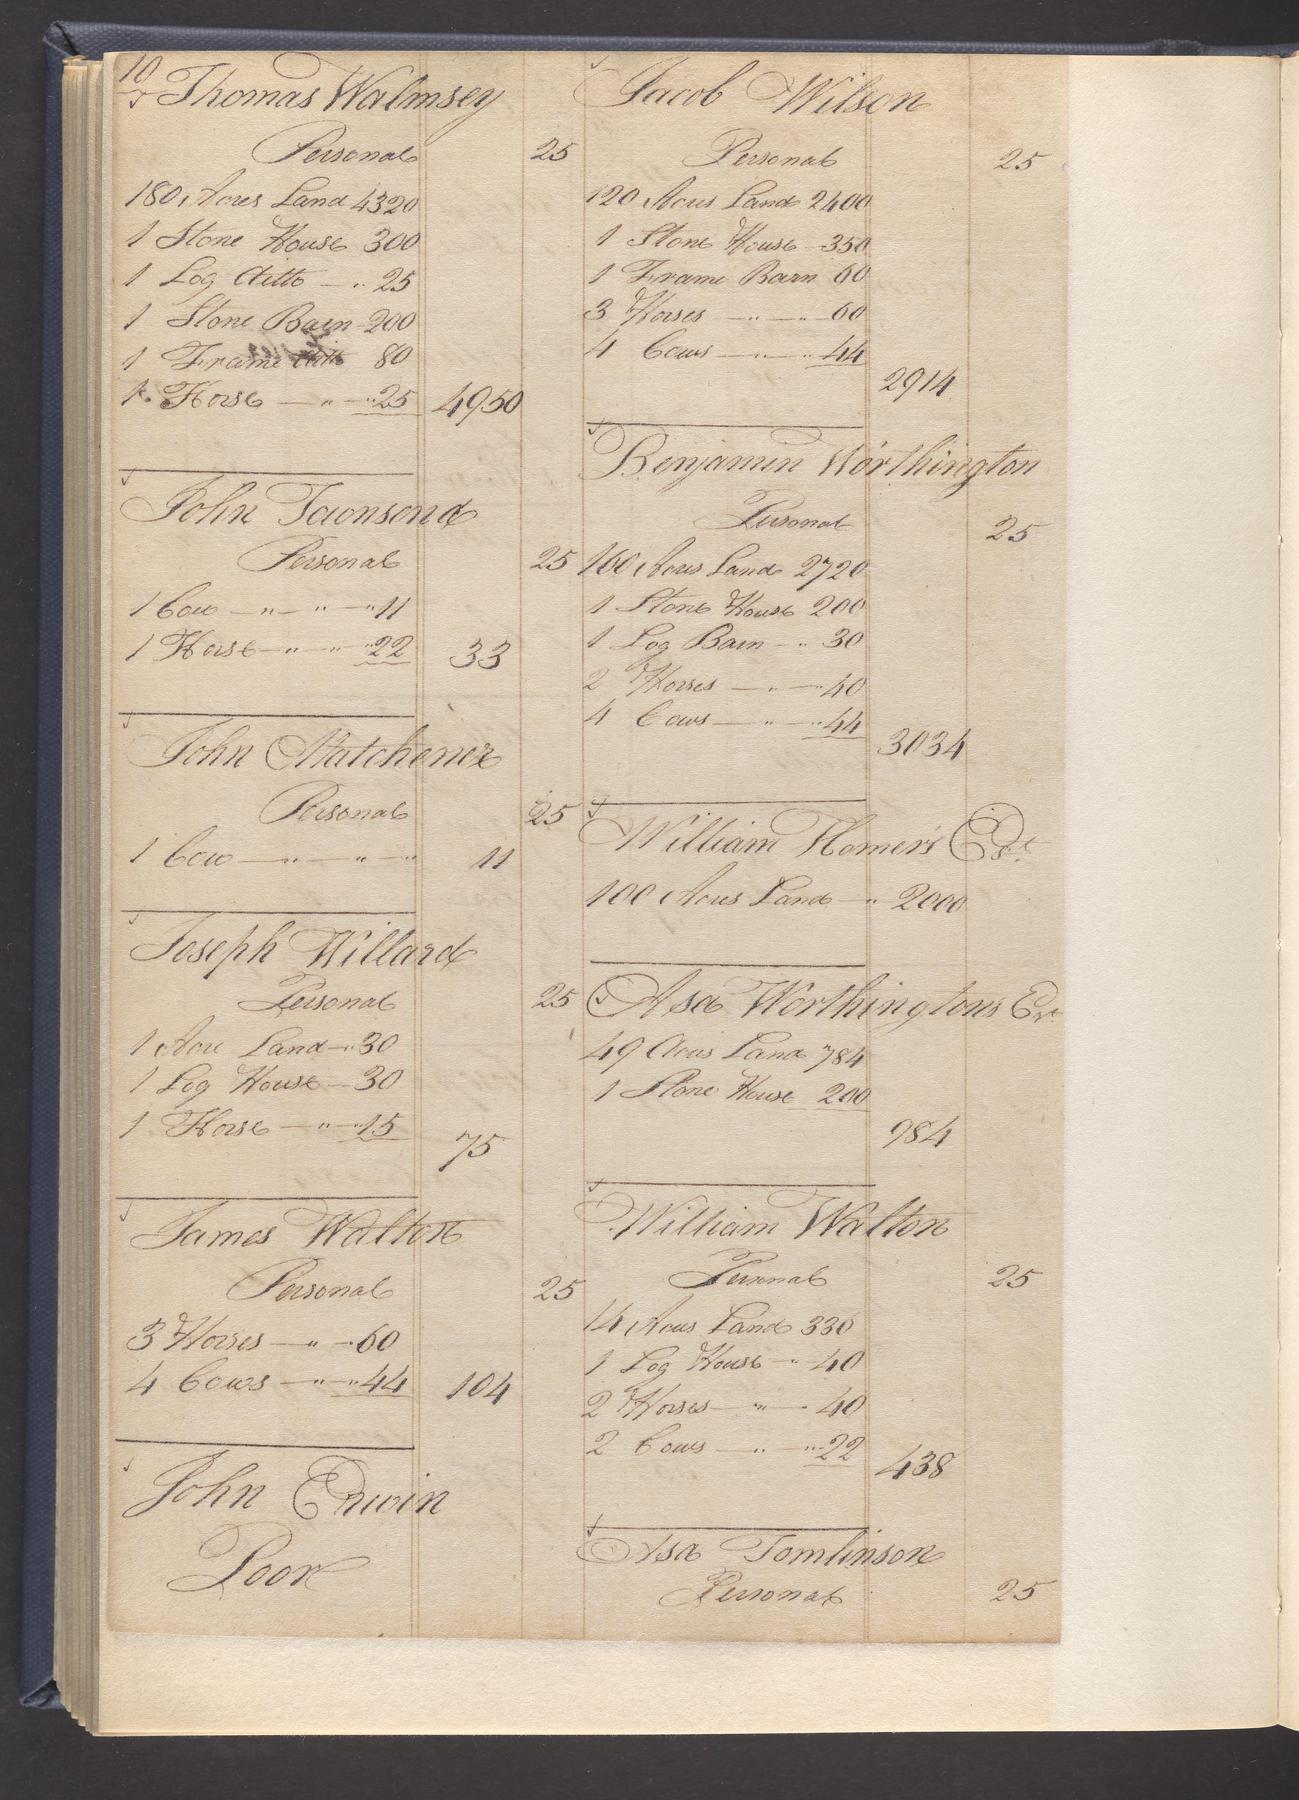 10
Thomas Walmsey
Personal 25
180 Acres Land 4320
1 Stone House 300
1 Log ditto 25
1 Stone Barn 200
1 Frame ditto 80
1 Horse 25 4950
John Townsend
Personal 25
1 Cow 11
1 Horse 22 33
John Matchener
Personal 25
1 Cow 11
Joseph Willard
Personal 25
1 Acre Land 30
1 Log House 30
1 Horse 15
75
James Walton
Personal 25
3 Horses 60
4 Cows 44 104
John Erwin
Poor
Jacob Wilson
Personal 25
120 Acres Land 2400
1 Stone House 350
1 Frame Barn 60
3 Horses 60
4 Cows 44
2914
Benjamin Worthington
Personal 25
160 Acres Land 2720
1 Stone House 200
1 Log Barn 30
2 Horses 40
4 Cows 44
3034
William Homer's Est
100 Acres Land 2000
Asa Worthingtons Est
49 Acres Land 784
1 Stone House 200
984
William Walton
Personal 25
14 Acres Land 336
1 Log House 40
2 Horses 40
2 Cows 22
438
Asa Tomlinson
Personal 25